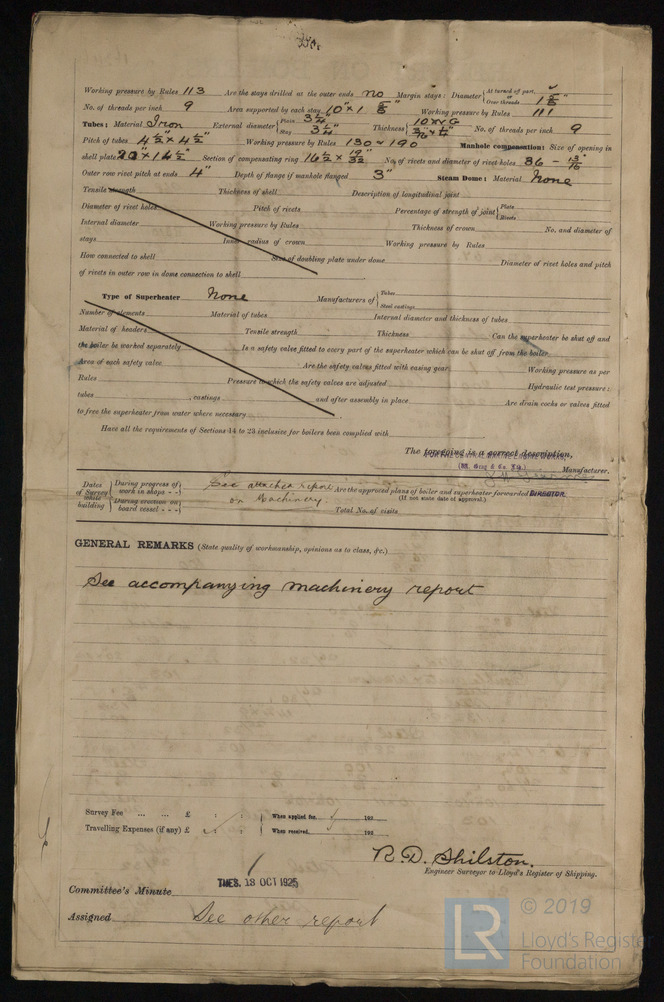 Working pressure by Rules 113 Are the stays drilled at the outer ends no Margin stays: Diameter { At turned off part, or Over threads 1 5/8"
No. of threads per inch 9 Area supported by each stay 10" × 1 Working pressure by Rules 111
Tubes: Material Iron External diameter { Plain 3 1/4" Stay 3 1/4" Thickness { 10 WG No. of threads per inch 9
Pitch of tubes 4 1/2" × 4 1/2" Working pressure by Rules 130 ~ 190 Manhole compensation: Size of opening in
shell plate Section of compensating ring 16 1/2 × 19/32" No. of rivets and diameter of rivet holes 36 - 13/16"
Outer row rivet pitch at ends 4" Depth of flange if manhole flanged 3" Steam Dome: Material None
Tensile strength Thickness of shell Description of longitudinal joint
Diameter of rivet holes Pitch of rivets Percentage of strength of joint { Plate Rivets
Internal diameter Working pressure by Rules Thickness of crown No. and diameter of
stays Inner radius of crown Working pressure by Rules
How connected to shell Size of doubling plate under dome Diameter of rivet holes and pitch
of rivets in outer row in dome connection to shell
Type of Superheater None Manufacturers of { Tubes Steel castings
Number of elements Material of tubes Internal diameter and thickness of tubes
Material of headers Tensile strength Thickness Can the superheater be shut off and
the boiler be worked separately Is a safety valve fitted to every part of the superheater which can be shut off from the boiler
Area of each safety valve Are the safety valves fitted with easing gear Working pressure as per
Rules Pressure to which the safety valves are adjusted Hydraulic test pressure:
tubes , castings and after assembly in place Are drain cocks or valves fitted
to free the superheater from water where necessary
Have all the requirements of Sections 14 to 23 inclusive for boilers been complied with
The foregoing is a correct description,
(Wm. Gray & Co. Ltd.) Manufacturer.
DIRECTOR.
Dates of Survey while building { During progress of work in shops - - } See attached report Are the approved plans of boiler and superheater forwarded
{ During erection on board vessel - - - } on Machinery. (If not state date of approval.)
Total No. of visits
GENERAL REMARKS (State quality of workmanship, opinions as to class, &c.)
See accompanying machinery report
Survey Fee ... ... £ : : When applied for, 192
Travelling Expenses (if any) £ : : When received, 192
R. D. Shilston.
Engineer Surveyor to Lloyd's Register of Shipping.
Committee's Minute TUES. 13 OCT 1925
Assigned See other report
© 2019
LR
Lloyd's Register
Foundation